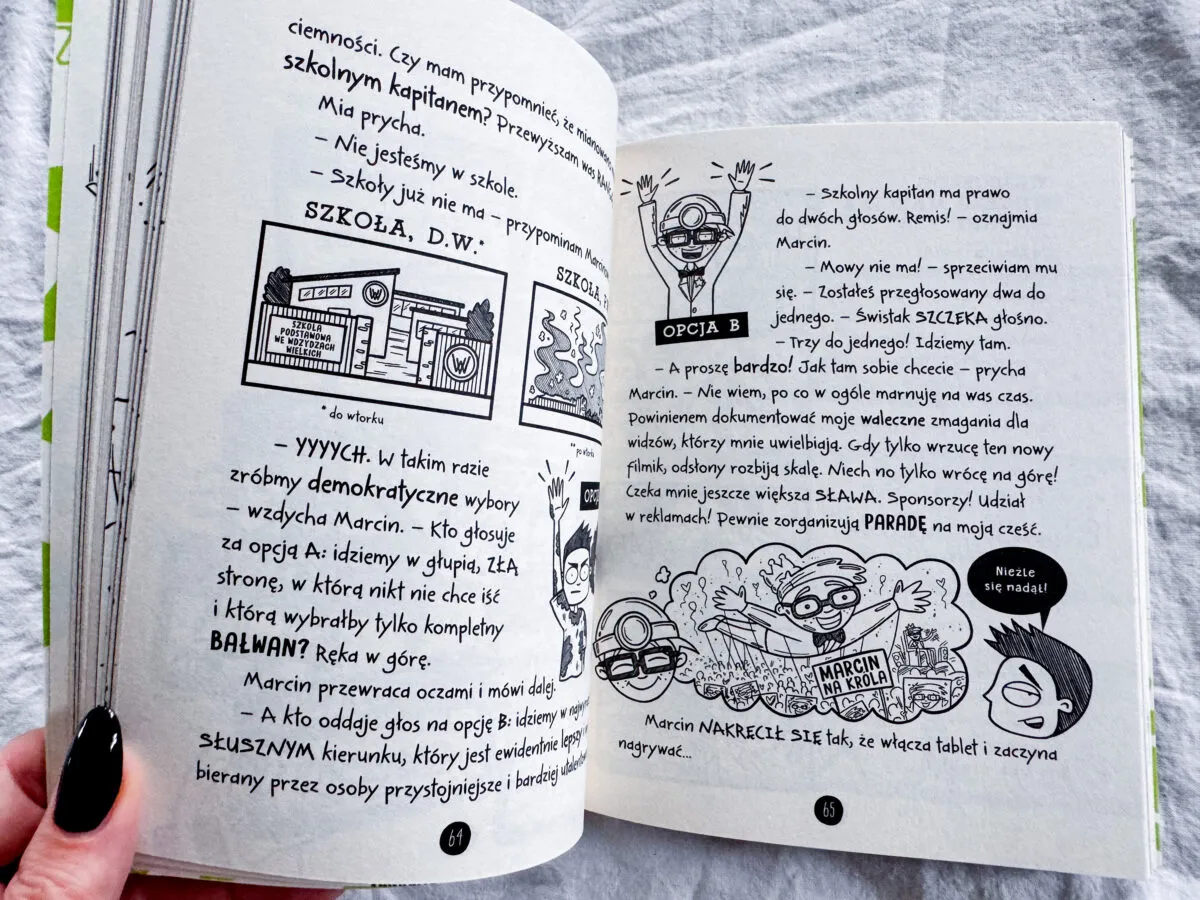 ciemności. Czy mam przypomnieć, że
szkolnym kapitanem? Przewyższam was
Mia prycha.
– Nie jesteśmy w szkole.
– Szkoły już nie ma – przypominam
SZKOŁA, D.W.*
SZKOŁA
PODSTAWOWA
WE WDZYDZACH
WIELKICH
W
W
* do wtorku
SZKOŁA,
** po wtorku
– YYYYCH. W takim razie
zróbmy demokratyczne wybory
– wzdycha Marcin. – Kto głosuje
za opcją A: idziemy w głupią, ZŁĄ
stronę, w którą nikt nie chce iść
i którą wybrałby tylko kompletny
BAŁWAN? Ręka w górę.
Marcin przewraca oczami i mówi dalej.
– A kto oddaje głos na opcję B: idziemy w
SŁUSZNYM kierunku, który jest ewidentnie lepszy i
bierany przez osoby przystojniejsze i bardziej
64
OPCJA B
– Szkolny kapitan ma prawo
do dwóch głosów. Remis! – oznajmia
Marcin.
– Mowy nie ma! – sprzeciwiam mu
się. – Zostałeś przegłosowany dwa do
jednego. – Świstak SZCZEKA głośno.
– Trzy do jednego! Idziemy tam.
– A proszę bardzo! Jak tam sobie chcecie – prycha
Marcin. – Nie wiem, po co w ogóle marnuję na was czas.
Powinienem dokumentować moje waleczne zmagania dla
widzów, którzy mnie uwielbiają. Gdy tylko wrzucę ten nowy
filmik, odsłony rozbiją skalę. Niech no tylko wrócę na górę!
Czeka mnie jeszcze większa SŁAWA. Sponsorzy! Udział
w reklamach! Pewnie zorganizują PARADĘ na moją cześć.
MARCIN
NA KRÓLA
Nieźle
się nadął!
Marcin NAKRĘCIŁ SIĘ tak, że włącza tablet i zaczyna
nagrywać...
65